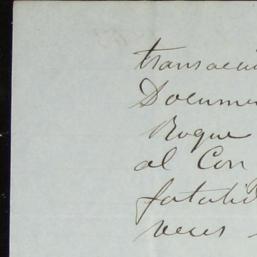 transacci
Docume
Roque
al Con
fatali
veces